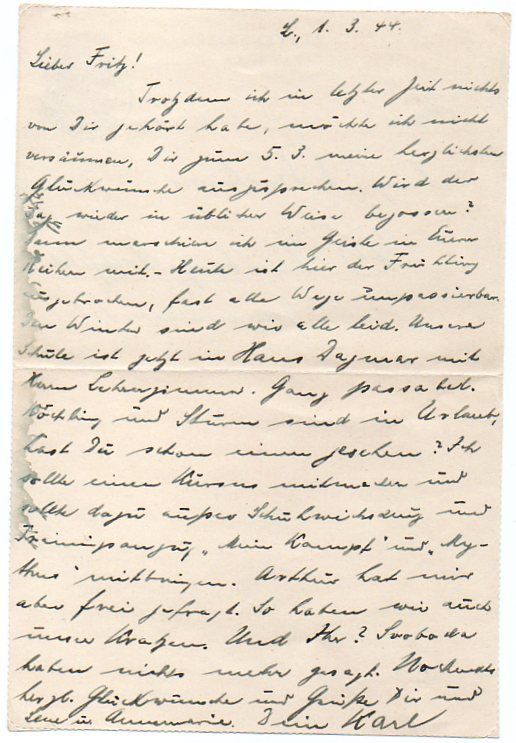 L., 1. 3. 44.
Lieber Fritz!
Trotzdem ich in letzter Zeit nichts
von Dir gehört habe, möchte ich nicht
versäumen, Dir zum 5. 3. meine herzlichsten
Glückwünsche auszusprechen. Wird der
Tag wieder in üblicher Weise begossen?
Dann marschiere ich im Geiste in Euren
Reihen mit. - Heute ist hier der Frühling
ausgebrochen, fast alle Wege unpassierbar.
Den Winter sind wir alle leid. Unsere
Schule ist jetzt in Haus Dagmar mit
Ganz passabel.
und Sturm sind in Urlaub,
hast Du schon einen gesehen? Ich
sollte einen Kursus mitmachen und
sollte dazu außer Schuhwichszeug und
Trainingsanzug „Mein Kampf" und „My-
thus" mitbringen. Arthur hat mir
aber frei gefragt. So haben wir auch
unsere Und Ihr? Svoboda
haben nichts mehr gesagt. Nochmals
herzl. Glückwünsche und Grüße Dir und
Lene u. Annemarie. Dein Karl